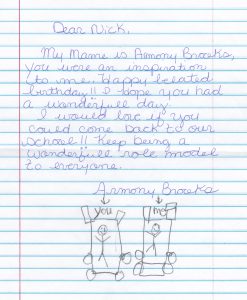 Dear Nick,
My Name is Armony Broeks,
you were an inspiration
to me. Happy belated
birthday!! I hope you had
a wonderfull day.
I would love if you
could come back to our
school!! Keep being a
wonderfull role model
to everyone.
Armony Broeks
you me